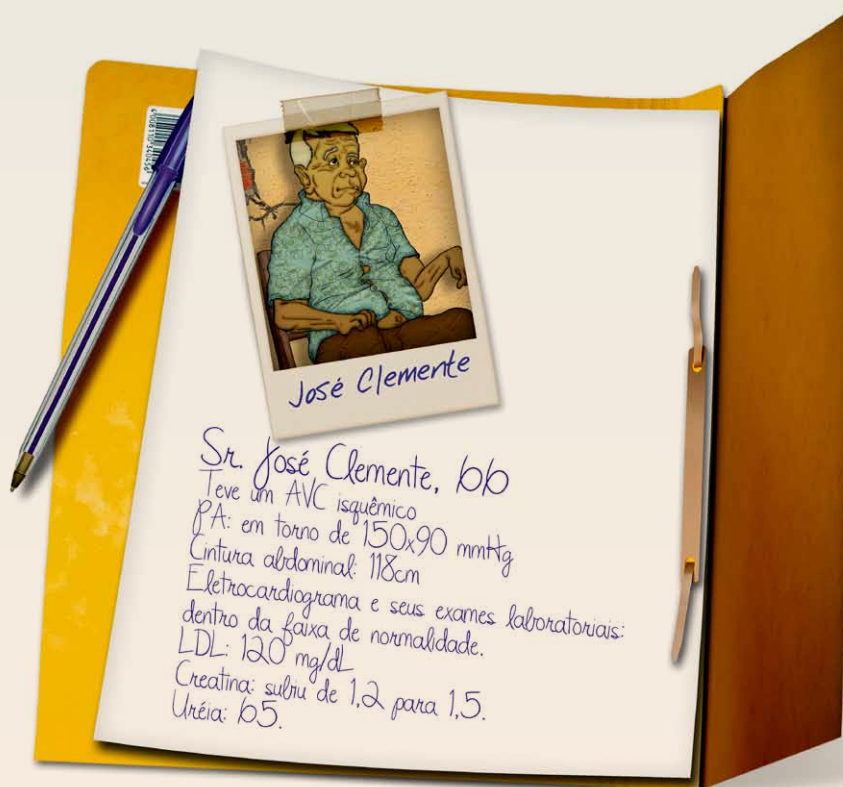 José Clemente
Sr. José Clemente, 66
Teve um AVC isquêmico
PA: em torno de 150x90 mmHg
Cintura abdominal: 118cm
Eletrocardiograma e seus exames laboratoriais:
dentro da faixa de normalidade.
LDL: 120 mg/dL
Creatina: subiu de 1,2 para 1,5.
Uréia: 65.